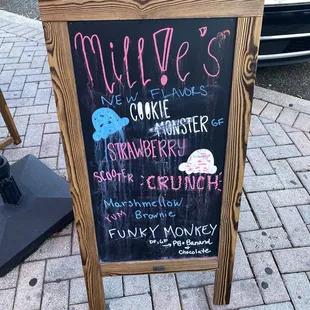 Mill!e's
NEW FLAVORS
COOKIE
MONSTER GF
STRAWBERRY
SCOOTER CRUNCH
Marshmellow
YUM Brownie
FUNKY MONKEY
DF, GF → PB + Banana
+ Chocolate